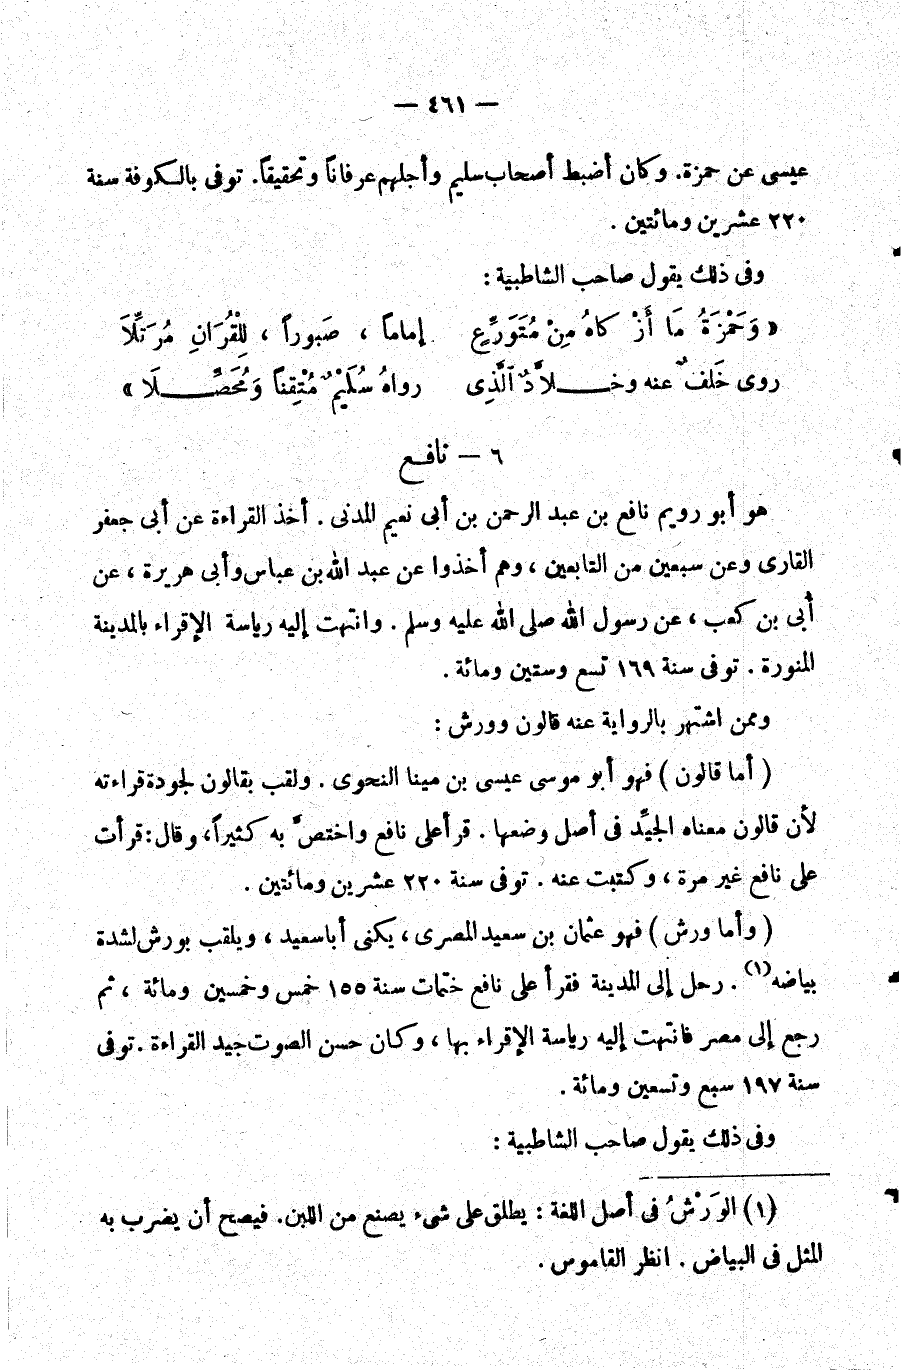 — ٤٦١ —
عيسى عن حمزة. وكان أضبط أصحاب سليم وأجلهم عرفاناً وتحقيقاً. توفى بالكوفة سنة
٢٢٠ عشرين ومائتين .
وفى ذلك يقول صاحب الشاطبية :
« وَحَمْزَةُ مَا أَزْكاهُ مِنْ مُتَوَرِّعٍ إماماً ، صَبوراً ، لِلْقُرَانِ مُرَتِّلاَ
روى خَلفٌ عنه وخـــلاَّدٌ ٱلَّذِى رواهُ سُلَيْمٌ مُتْقِناً وَمُحَصِّـــلَا »
٦ — نافع
هو أبو رويم نافع بن عبد الرحمن بن أبى نعيم المدنى . أخذ القراءة عن أبى جعفر
القارى وعن سبعين من التابعين ، وهم أخذوا عن عبد الله بن عباس وأبى هريرة ، عن
أبى بن كعب ، عن رسول الله صلى الله عليه وسلم . وانتهت إليه رياسة الإقراء بالمدينة
المنورة . توفى سنة ١٦٩ تسع وستين ومائة .
وممن اشتهر بالرواية عنه قالون وورش :
( أما قالون ) فهو أبو موسى عيسى بن مينا النحوى . ولقب بقالون لجودة قراءته
لأن قالون معناه الجيِّد فى أصل وضعها . قرأ على نافع واختصَّ به كثيراً، وقال : قرأت
على نافع غير مرة ، وكتبت عنه . توفى سنة ٢٢٠ عشرين ومائتين .
( وأما ورش ) فهو عثمان بن سعيد المصرى ، يكنى أبا سعيد ، ويلقب بورش لشدة
بياضه(١) . رحل إلى المدينة فقرأ على نافع ختمات سنة ١٥٥ خمس وخمسين ومائة ، ثم
رجع إلى مصر فانتهت إليه رياسة الإقراء بها ، وكان حسن الصوت جيد القراءة . توفى
سنة ١٩٧ سبع وتسعين ومائة .
وفى ذلك يقول صاحب الشاطبية :
(١) الوَرْشُ فى أصل اللغة : يطلق على شىء يصنع من اللبن. فيصح أن يضرب به
المثل فى البياض . انظر القاموس .